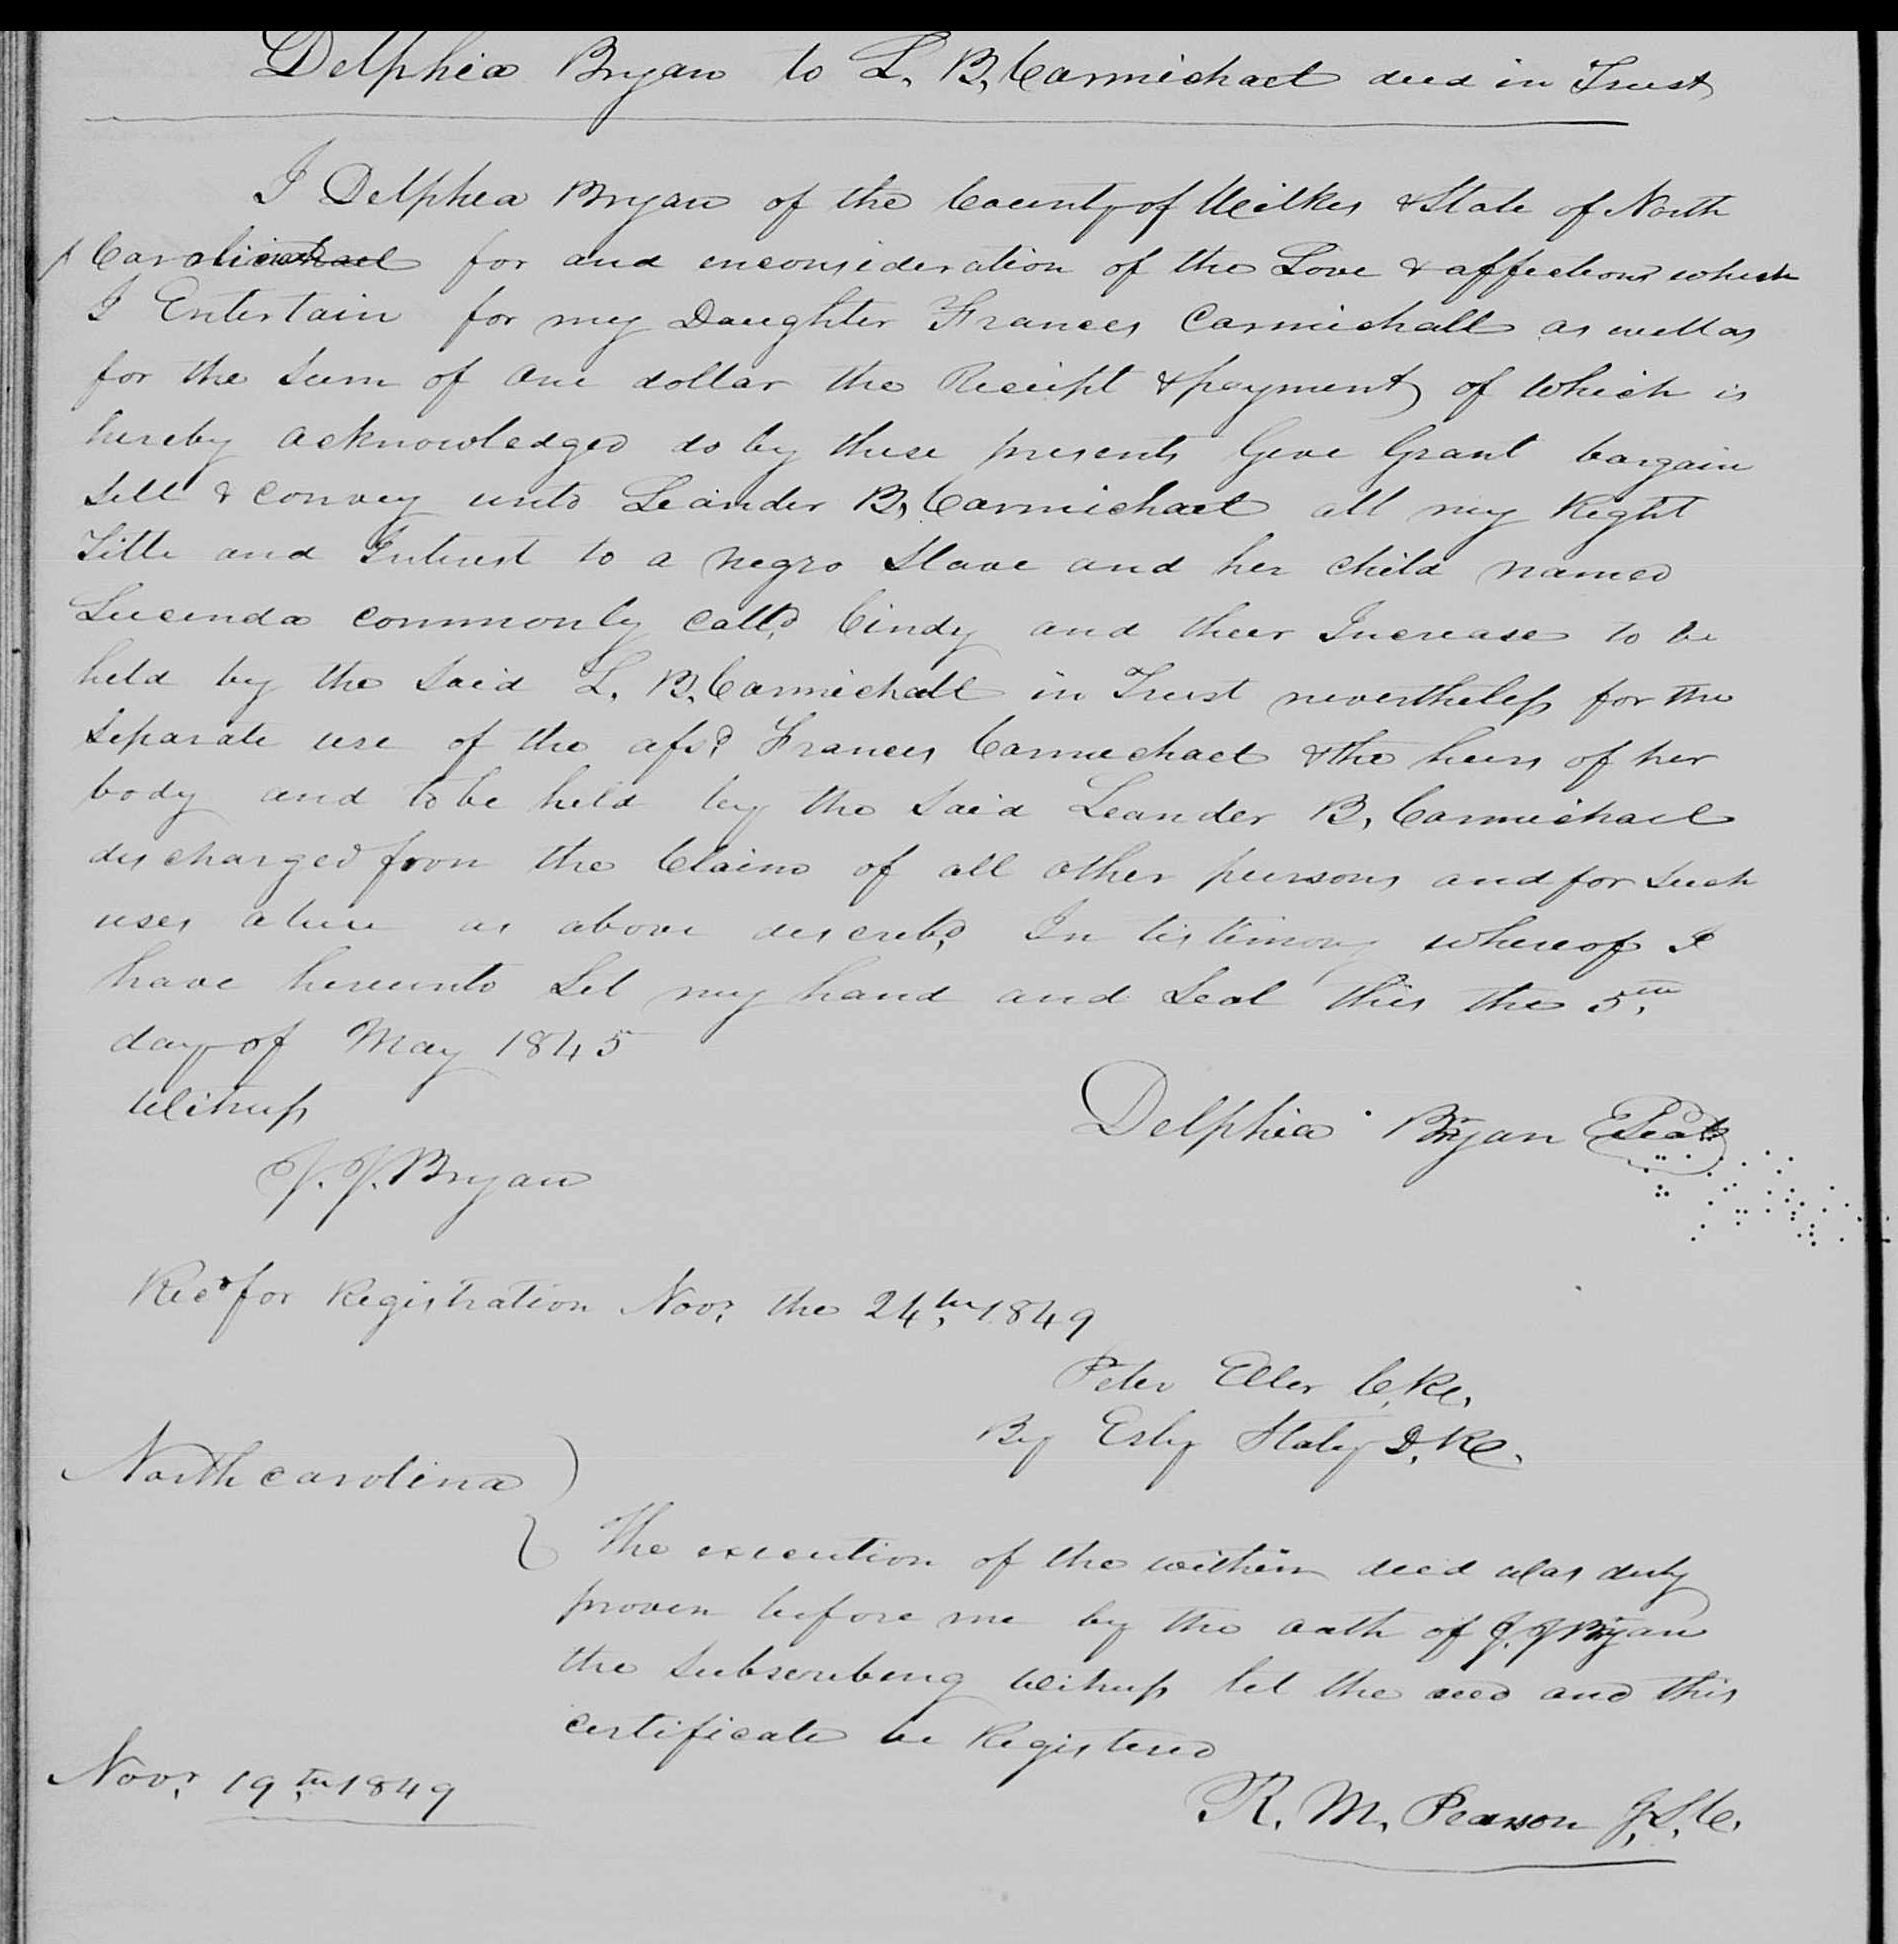 Delphia Bryan to L. B. Carmichael deed in Trust
I Delphea Bryan of the County of Wilkes & State of North
Carolina for and inconsideration of the Love & affection which
I Entertain for my Daughter Frances Carmichall as well as
for the Sum of One dollar the Receipt & payment of which is
hereby acknowledged do by these presents Geve Grant bargain
Sell & Convey unto Leander B. Carmichael all my Right
Title and Interest to a negro Slave and her child named
Lucenda commonly calld Cindy and their Increase to be
held by the Said L. B. Carmichall in Trust nevertheless for the
Separate use of the afsd Frances Carmichael & the heirs of her
body and to be held by the Said Leander B. Carmichael
discharged from the Claim of all other persons and for Such
uses alone as above describd In testimony whereof I
have hereunto Set my hand and Seal this the 5th
day of May 1845
Witness
Delphia Bryan Seal
J. J. Bryan
Recd for Registration Novr the 24th 1849
Peter Eller C. R.
By Esly Staley D. R.
North carolina
The execution of the within deed was duly
proven before me by the oath of J. J Bryan
the Subscribing Witness let the deed and this
certificate be Registered
Novr 19th 1849
R. M. Pearson J. S. C.